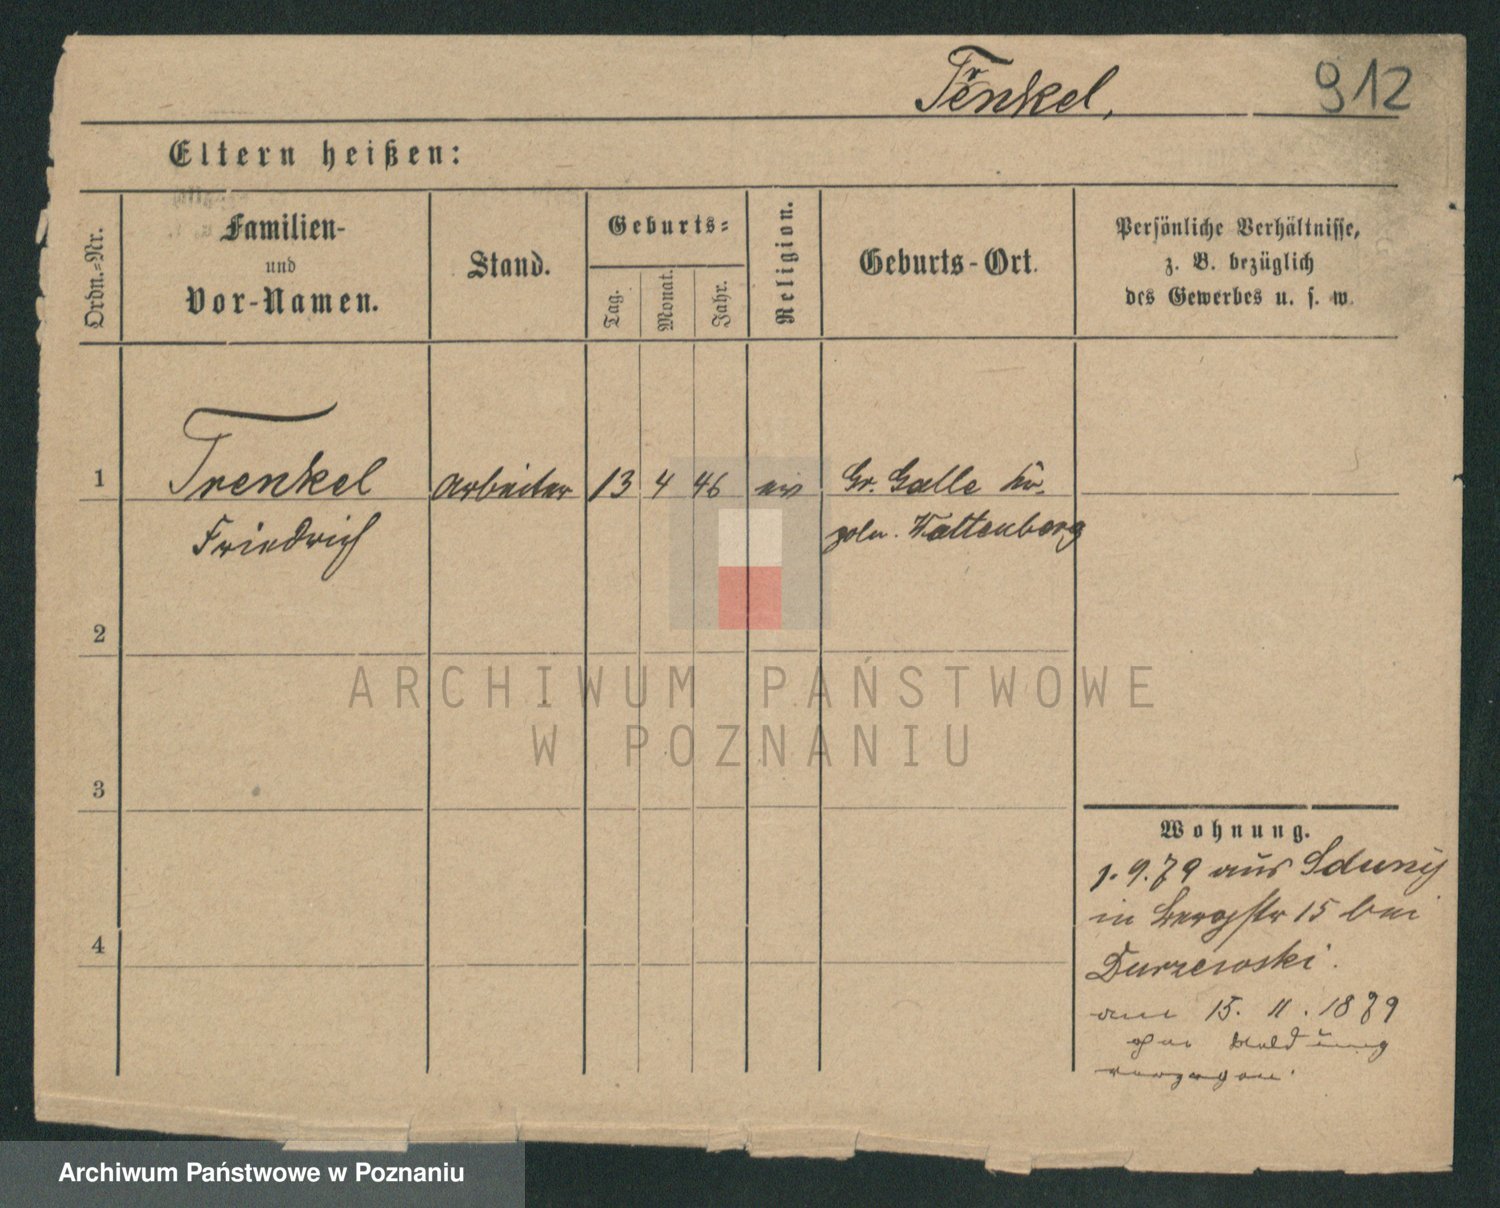 Trenkel,
912
Eltern heißen:
Ordn.=Nr.
Familien-
und
Vor-Namen.
Stand.
Geburts=
Tag.
Monat.
Jahr.
Religion.
Geburts-Ort.
Persönliche Verhältnisse,
z. B. bezüglich
des Gewerbes u. s. w.
1
Trenkel
Arbeiter
13
4
46
ev
Gr. Galle
Friedrich
poln. Wattenberg
2
ARCHIWUM PAŃSTWOWE
W POZNANIU
3
4
Wohnung.
1.9.79 aus Zduny
in Bergstr 15 bei
Durzewski.
am 15. 11. 1879
ohne Meldung
verzogen.
Archiwum Państwowe w Poznaniu